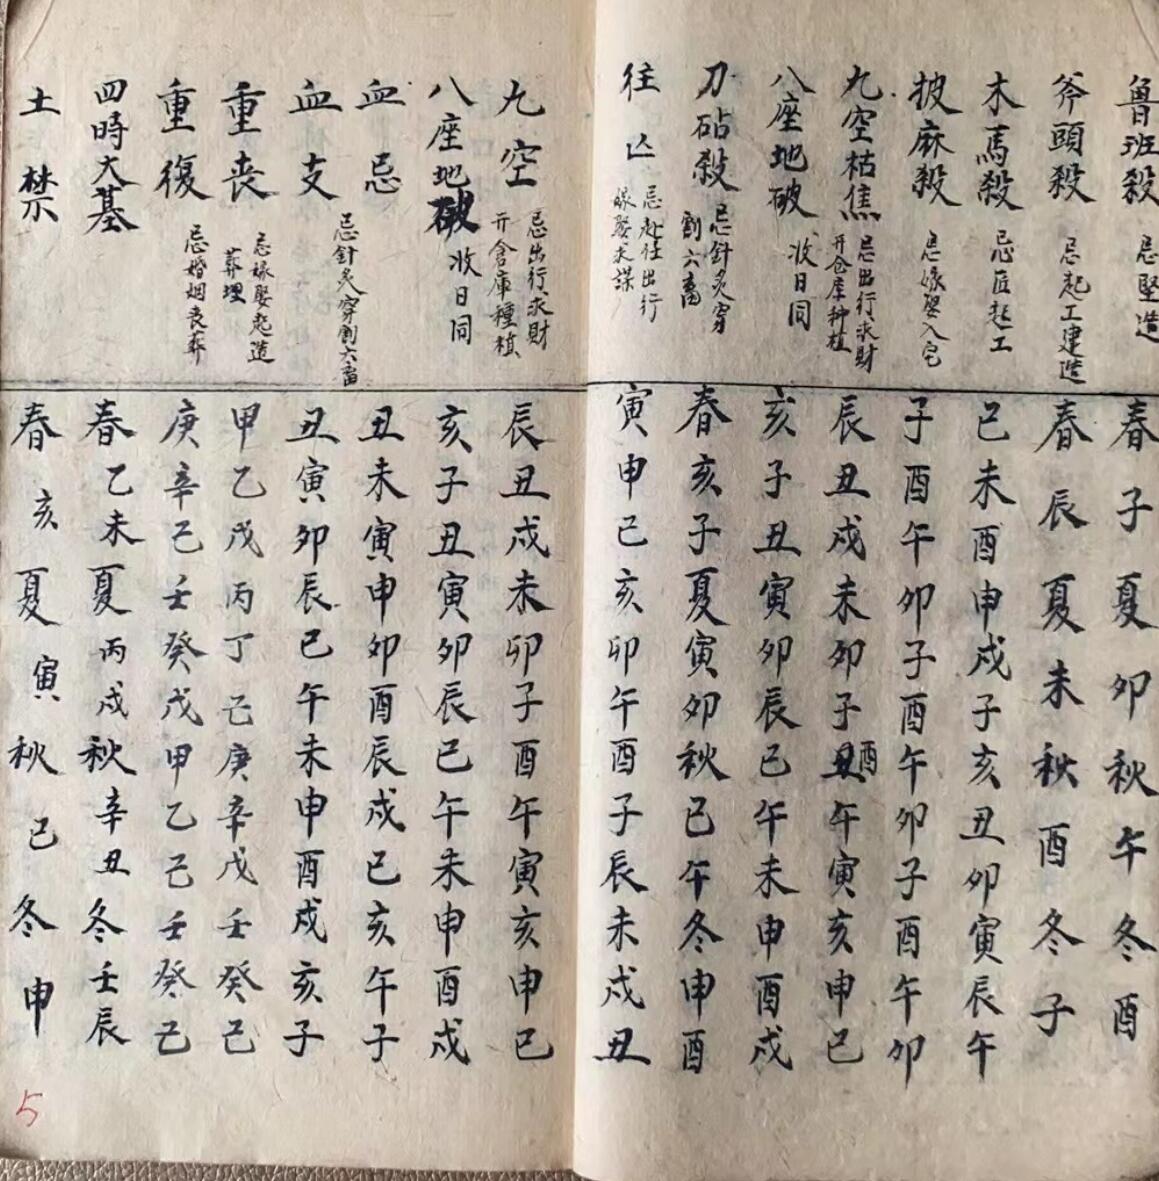 魯班殺 忌堅造 春子夏卯秋午冬酉
斧頭殺 忌起工建造 春辰夏未秋酉冬子
木馬殺 忌匠起工 巳未酉申戌子亥丑卯寅辰午
披麻殺 忌嫁娶入宅 子酉午卯子酉午卯子酉午卯
九空枯焦 忌出行求財开仓库种植 辰丑戌未卯子丑酉午寅亥申巳
八座地破 收日同 亥子丑寅卯辰巳午未申酉戌
刀砧殺 忌針灸穿割六畜 春亥子夏寅卯秋巳午冬申酉
往亡 忌赴任出行嫁娶求謀 寅申巳亥卯午酉子辰未戌丑
九空 忌出行求財开倉庫種植 辰丑戌未卯子酉午寅亥申巳
八座地破 收日同 亥子丑寅卯辰巳午未申酉戌
血忌 丑未寅申卯酉辰戌巳亥午子
血支 忌針灸穿割六畜 丑寅卯辰巳午未申酉戌亥子
重喪 忌嫁娶起造葬埋 甲乙戊丙丁己庚辛戊壬癸己
重復 忌婚姻喪葬 庚辛己壬癸戊甲乙己壬癸己
四時大墓 春乙未夏丙戌秋辛丑冬壬辰
土禁 春亥夏寅秋巳冬申
5